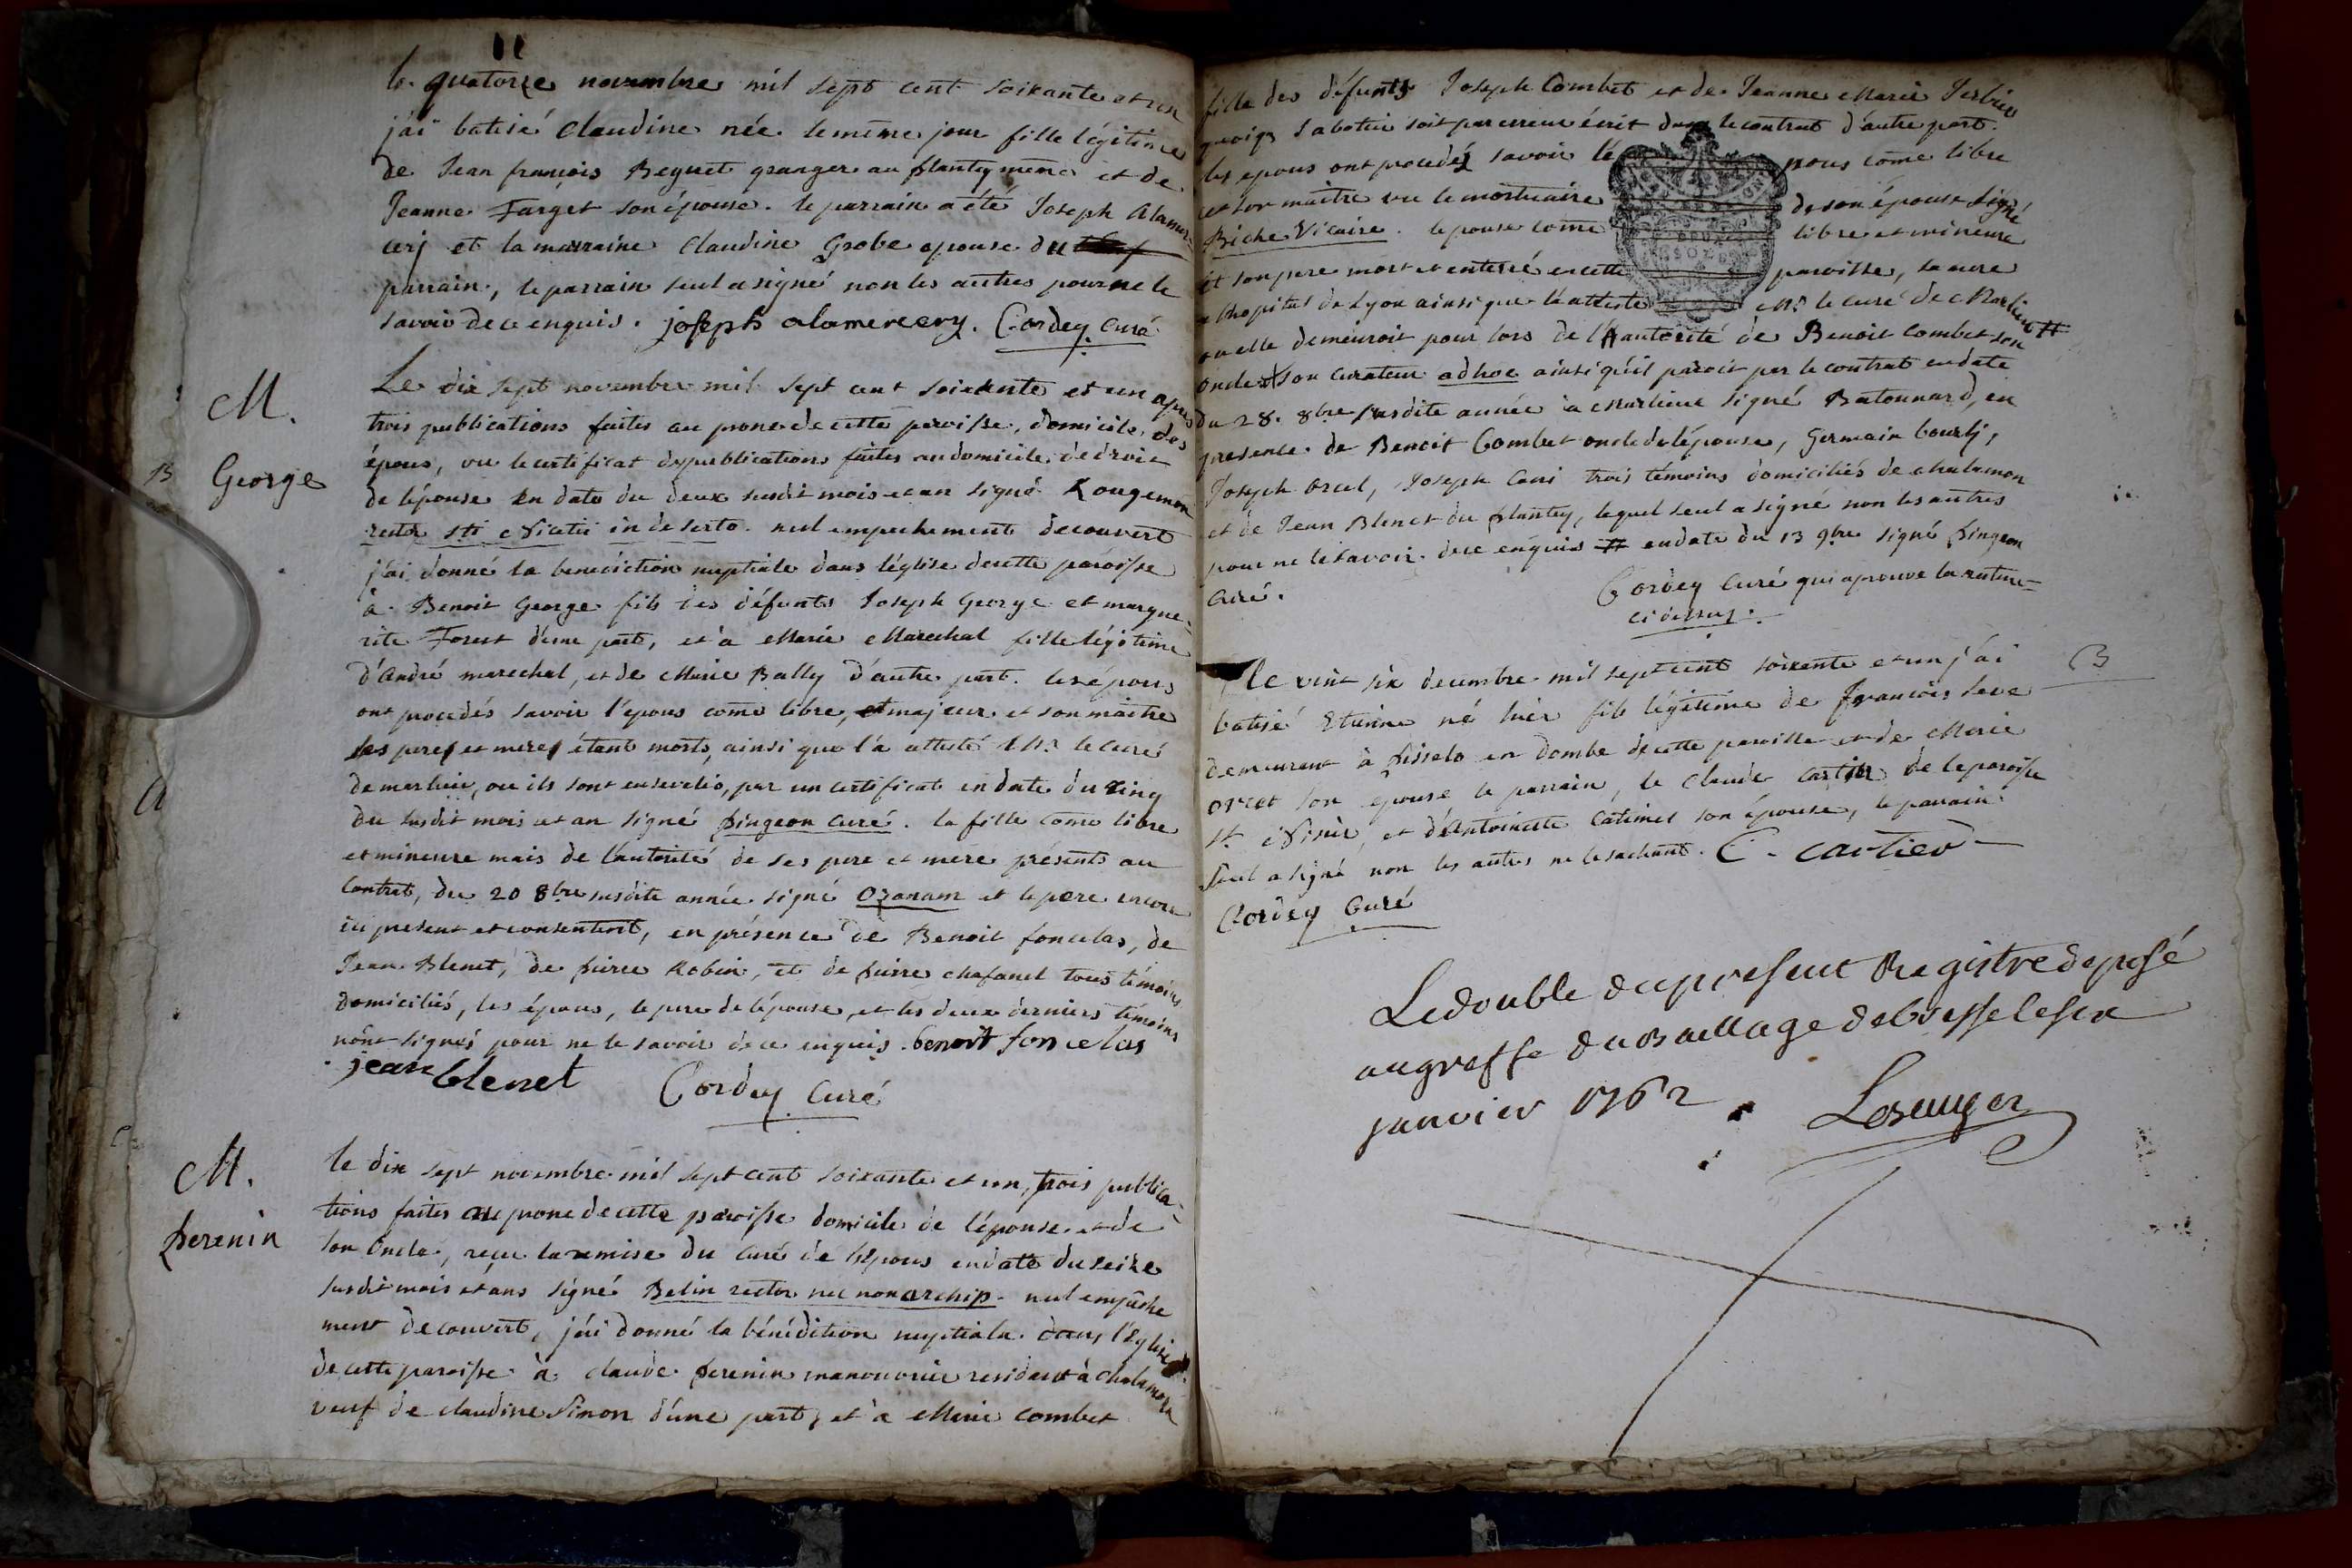 le quatorze novembre mil sept cent soixante et un
j'ai batisé Claudine née le même jour fille légitime
de Jean françois Beguet granger au plantey même et de
Jeanne Farget son épouse. le parrain a été Joseph Alamer-
cerj et la marraine Claudine Grobe epouse du
parrain, le parrain seul a signé non les autres pour ne le
savoir de ce enquis. joseph alamercery. Cordey Curé
M.
George
Le dix sept novembre mil sept cent soixante et un apres
trois publications faites au prone de cette paroisse, domicile des
épous, vu le certificat de publications faites au domicile de droit
de lépouse en date du deux susdit mois et an signé Rougemon
rector sti Nicetii in deserto. nul empechement decouvert
j'ai donné la benediction nuptiale dans l'église de cette paroisse
à Benoit George fils des défunts Joseph George et margue-
rite Forest d'une part, et à Marie Marechal fille légitime
d'André marechal, et de Marie Bally d'autre part. les épous
ont procedés savoir l'epous come libre, et majeur et son maitre
ses peres et meres étant morts, ainsi que l'a attesté Mr. le curé
de marlieu, ou ils sont ensevelis, par un certificat en date du cinq
du susdit mois et an signé pingeon curé. la fille come libre
et mineure mais de l'autorité de ses pere et mere présents au
Contrat, du 20 8bre susdite année signé Ozanam et le pere encore
ici present et consentent, en présence de Benoit foncelas, de
Jean Blenet, de pierre Robin, et de pierre chafanel tous témoins
domiciliés, les épous, le pere de lépouse, et les deux derniers témoins
n'ont signés pour ne le savoir de ce enquis. benoit foncelas
jean blenet Cordey Curé
M.
perenin
le dix sept novembre mil sept cent soixante et un, trois publica-
tions faites au prone de cette paroisse domicile de l'épouse et de
son Oncle, reçu la remise du curé de l'épous en date du seize
susdit mois et ans signé Belin rector nec non archip. nul empêche
ment decouvert, j'ai donné la bénédition nuptiale dans l'Eglise
de cette paroisse à claude perenin manouvrier residant à Chalamon
veuf de claudine Simon d'une part, et à Marie combet
fille des défunts Joseph Combet et de Jeanne Marie
quoiqe Sabotier soit par erreur écrit dans le contrat d'autre part.
les epous ont procedés savoir l'épous come libre
et son maitre vu le mortuaire de son épouse signé
Biche Vicaire. lepouse come libre et mineure
et son pere mort et enterré en cette paroisse, sa mere
a lhopital de Lyon ainsi que l'atteste Mr. le curé de Marlieu #
ou elle demeuroit pour lors de l'autorité de Benoit Combet son
oncle et son curateur adhoc ainsi qu'il paroit par le contrat en date
du 28. 8bre susdite année à Marlieu signé Batonnard, en
presence de Benoit Combet oncle de lépouse, Germain bourlj,
Joseph orcel, Joseph Cani trois témoins domiciliés de chalamon
et de Jean Blenet du plantey, lequel seul a signé non les autres
pour ne le savoir de ce enquis # en date du 13 9bre signé pingeon
curé.
Cordey Curé qui aprouve la rature
ci dessus.
B
le vint six decembre mil sept cent soixante et un j'ai
batisé Etienne né hier fils légitime de François Seve
demeurant à pisselo en dombe de cette paroisse et de Marie
orcet son epouse le parrain, le claude cartier de la paroisse
st. Nisier, et d'Antoinette Catimel son épouse, le parrain
seul a signé non les autres ne le sachant. C. cartier
Cordey Curé
Le double du present Registre déposé
au greffe du Baillage de bresse le six
janvier 1762